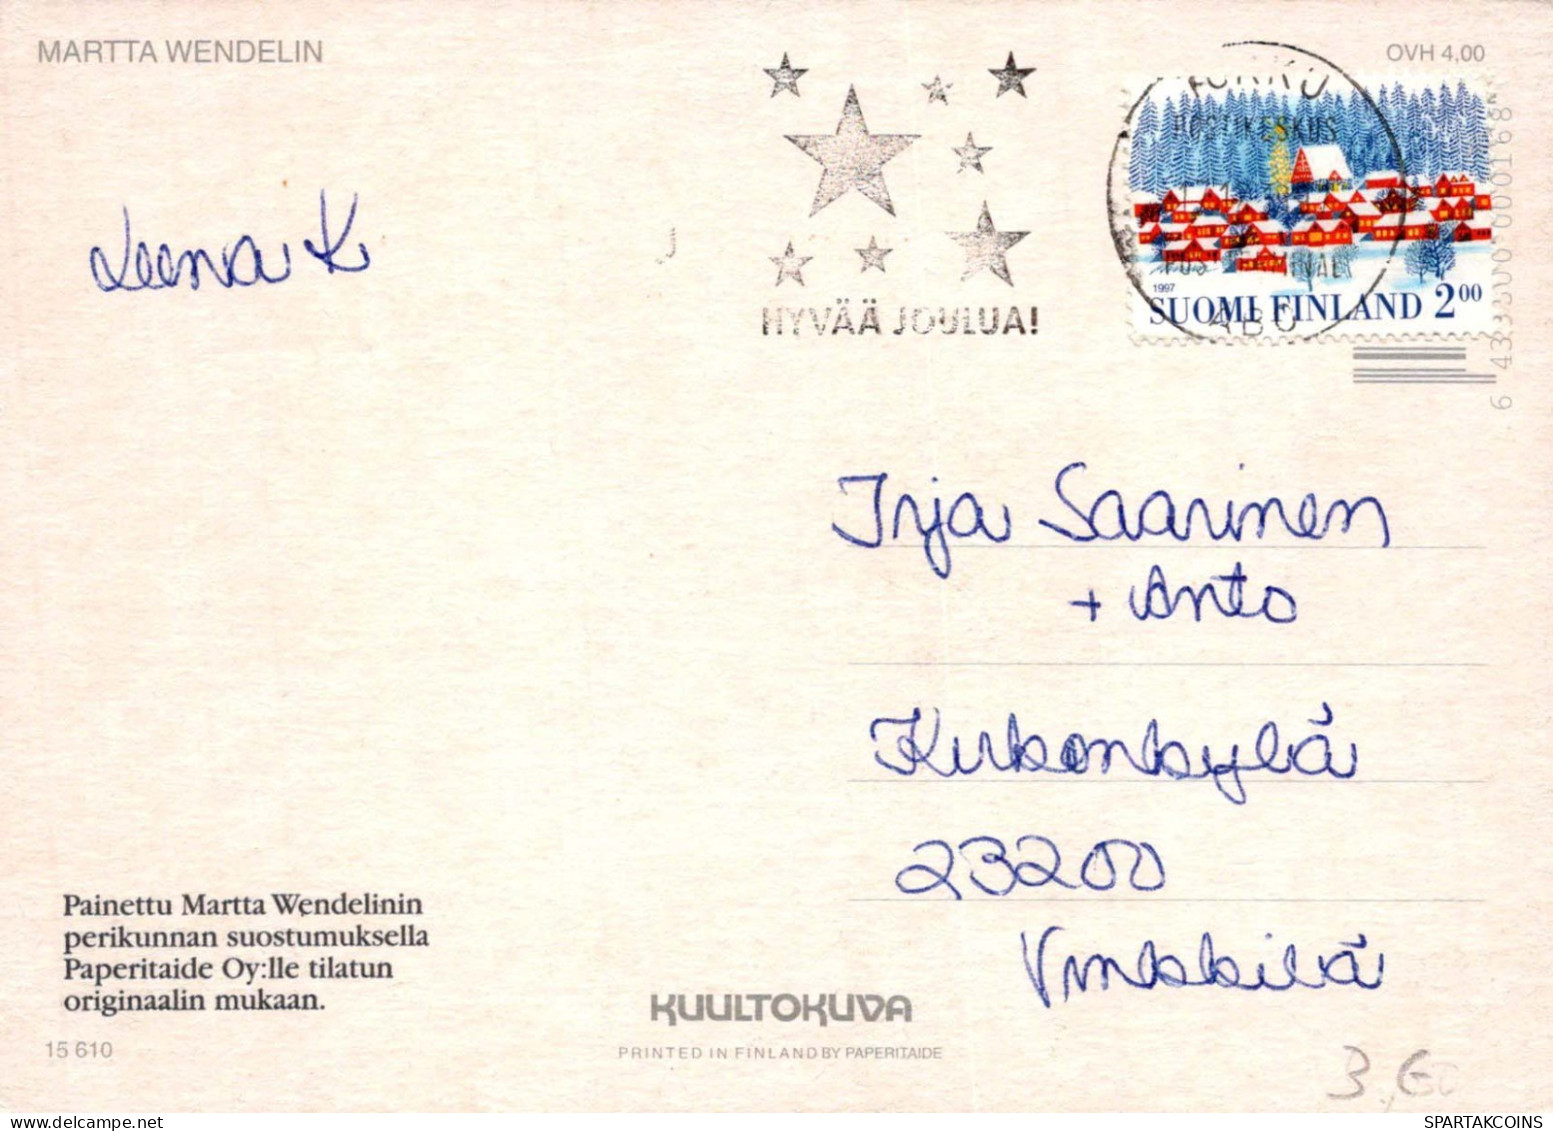 MARTTA WENDELIN
OVH 4,00
TURKU
POSTIKESKUS
ABO
HYVÄÄ JOULUA!
1997
SUOMI FINLAND 2 00
6 433500 000168
Leena K
Irja Saarinen
+ Anto
Kirkonkylä
23200
Vinkkilä
Painettu Martta Wendelinin
perikunnan suostumuksella
Paperitaide Oy:lle tilatun
originaalin mukaan.
KUULTOKUVA
15 610
PRINTED IN FINLAND BY PAPERITAIDE
SPARTAKCOINS